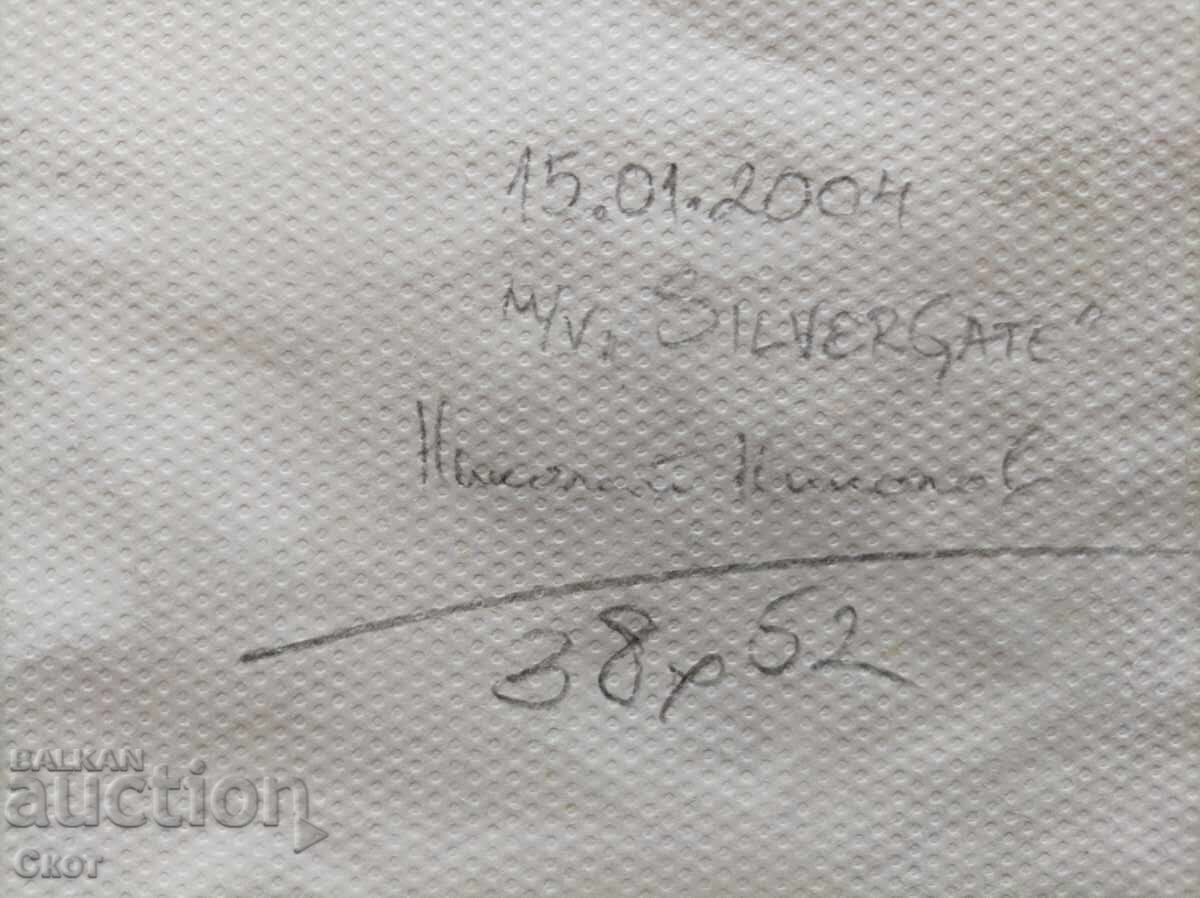 15.01.2004
M/V „SILVERGATE"
Николай Николов
38x52
BALKAN
auction
Скот